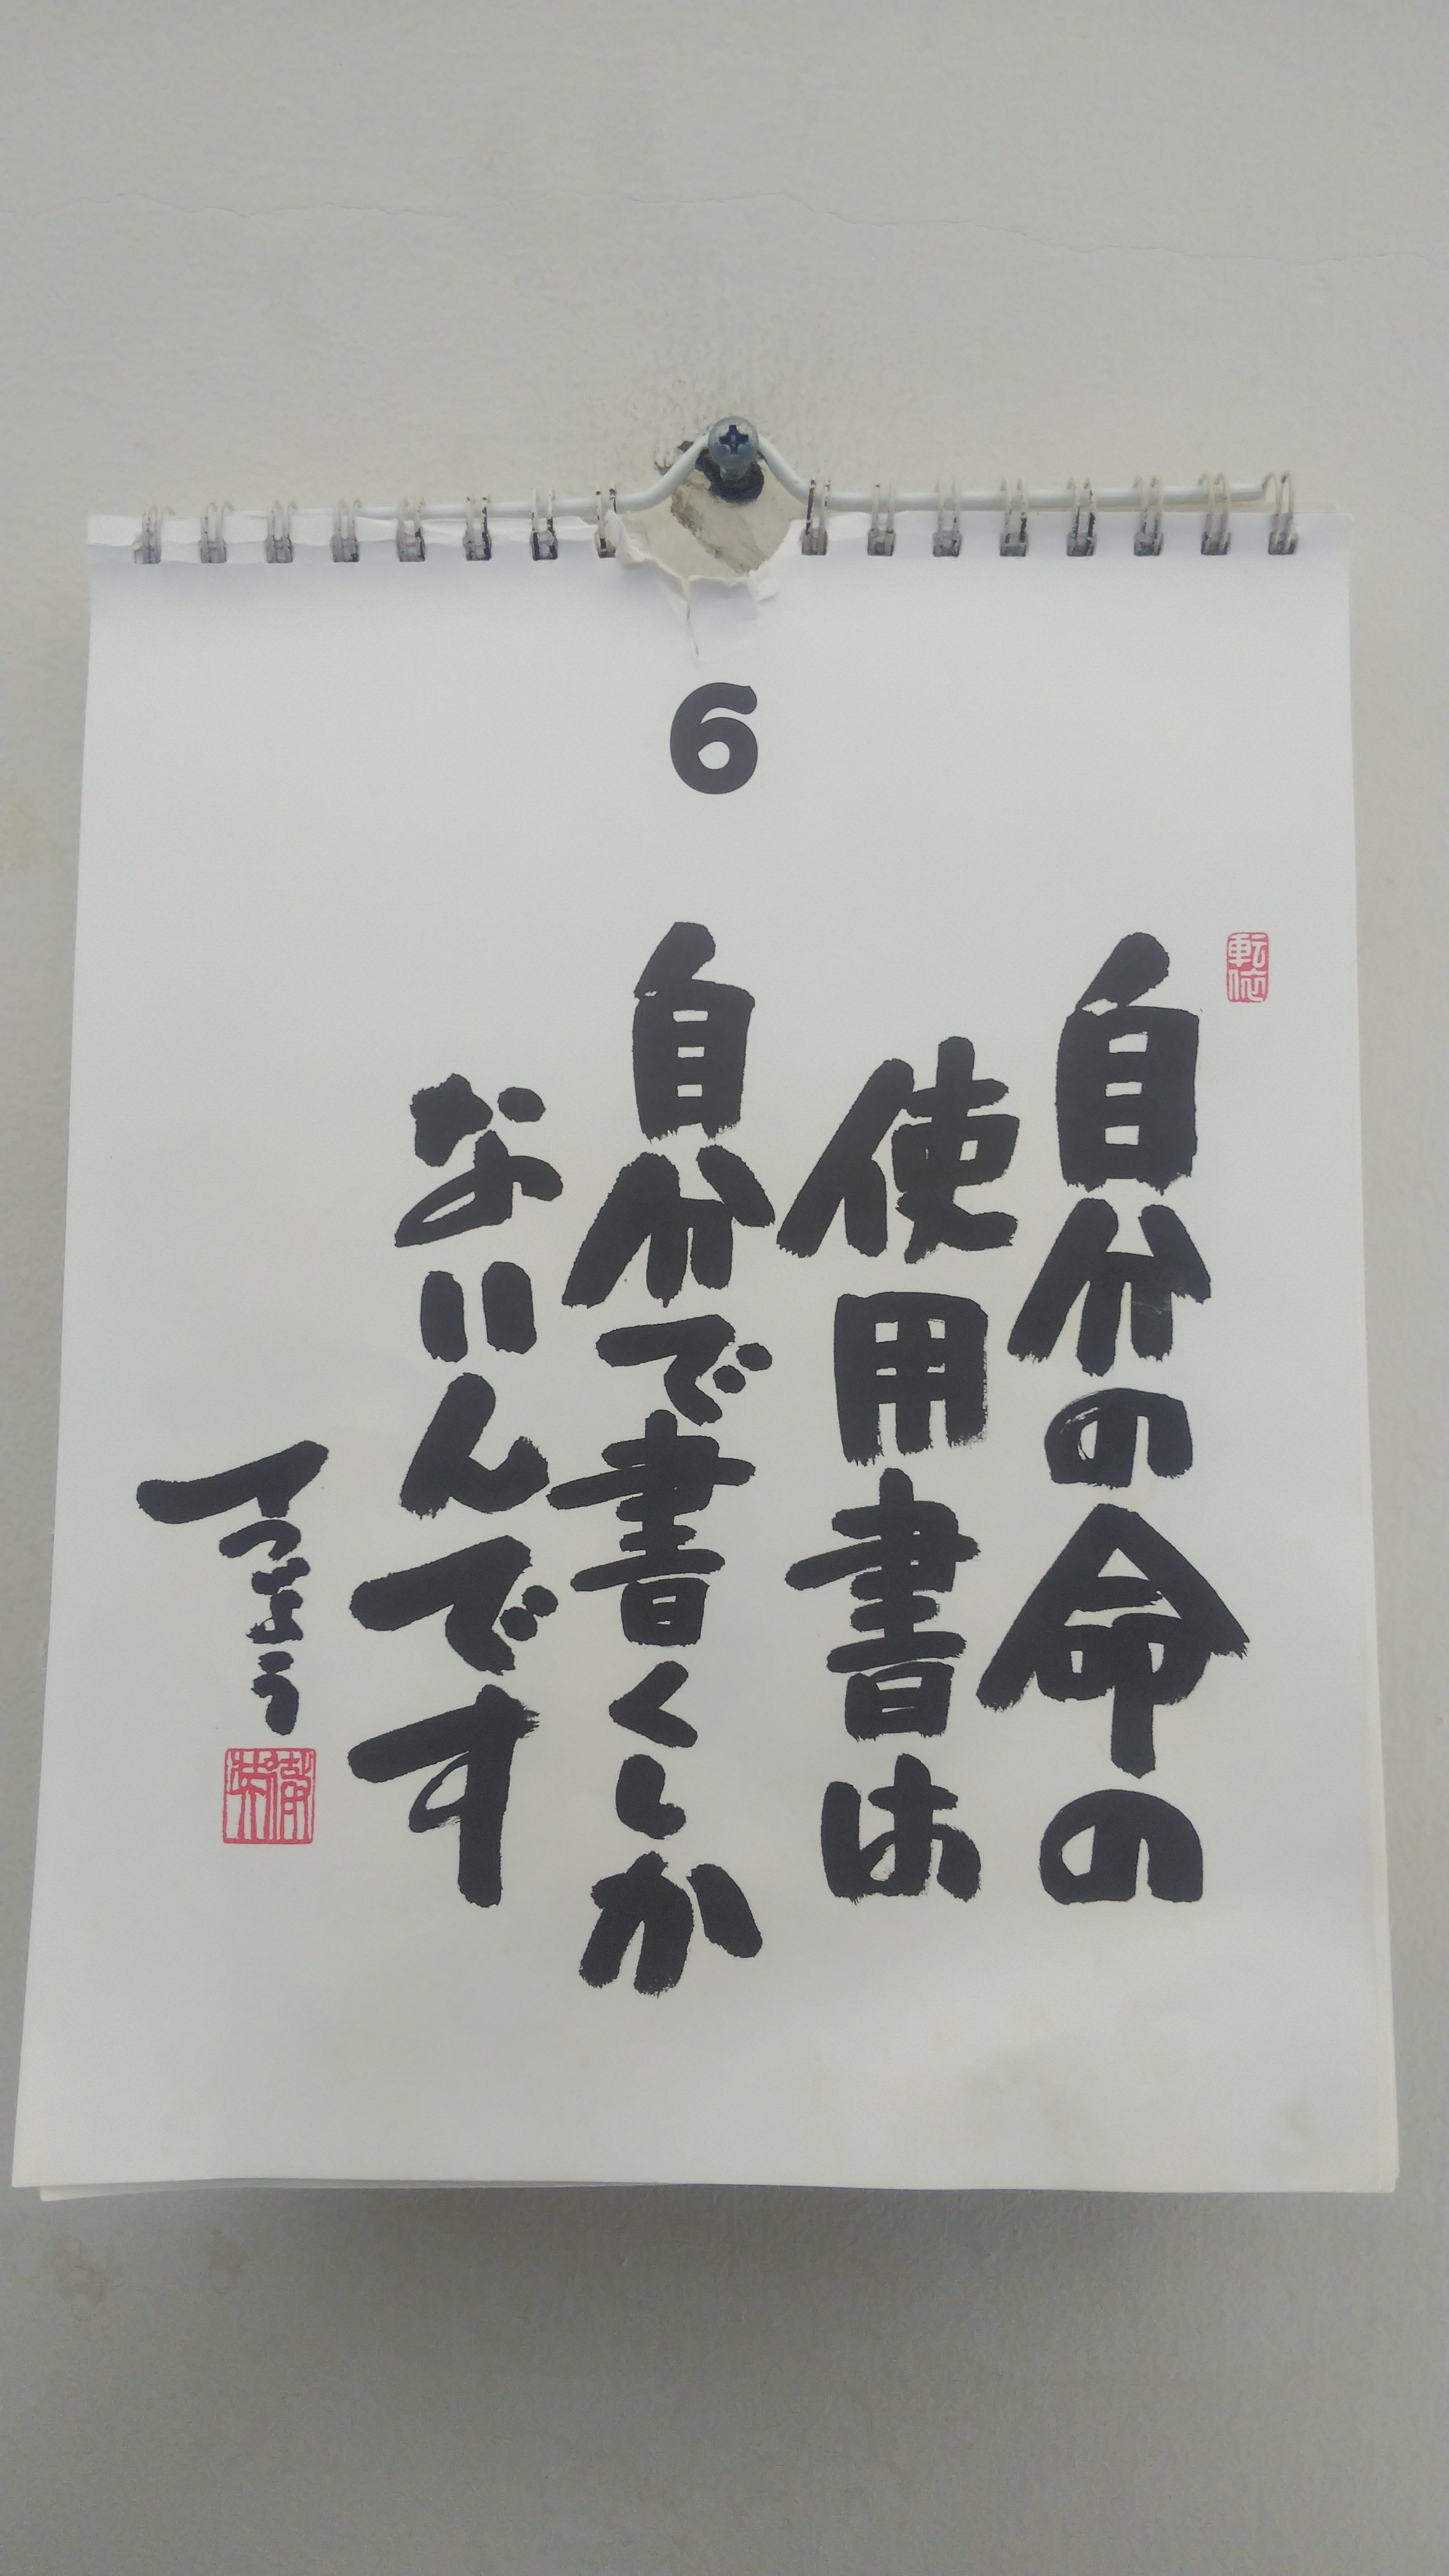 6
自分の命の
使用書は
自分で書くしか
ないんです
てつょう